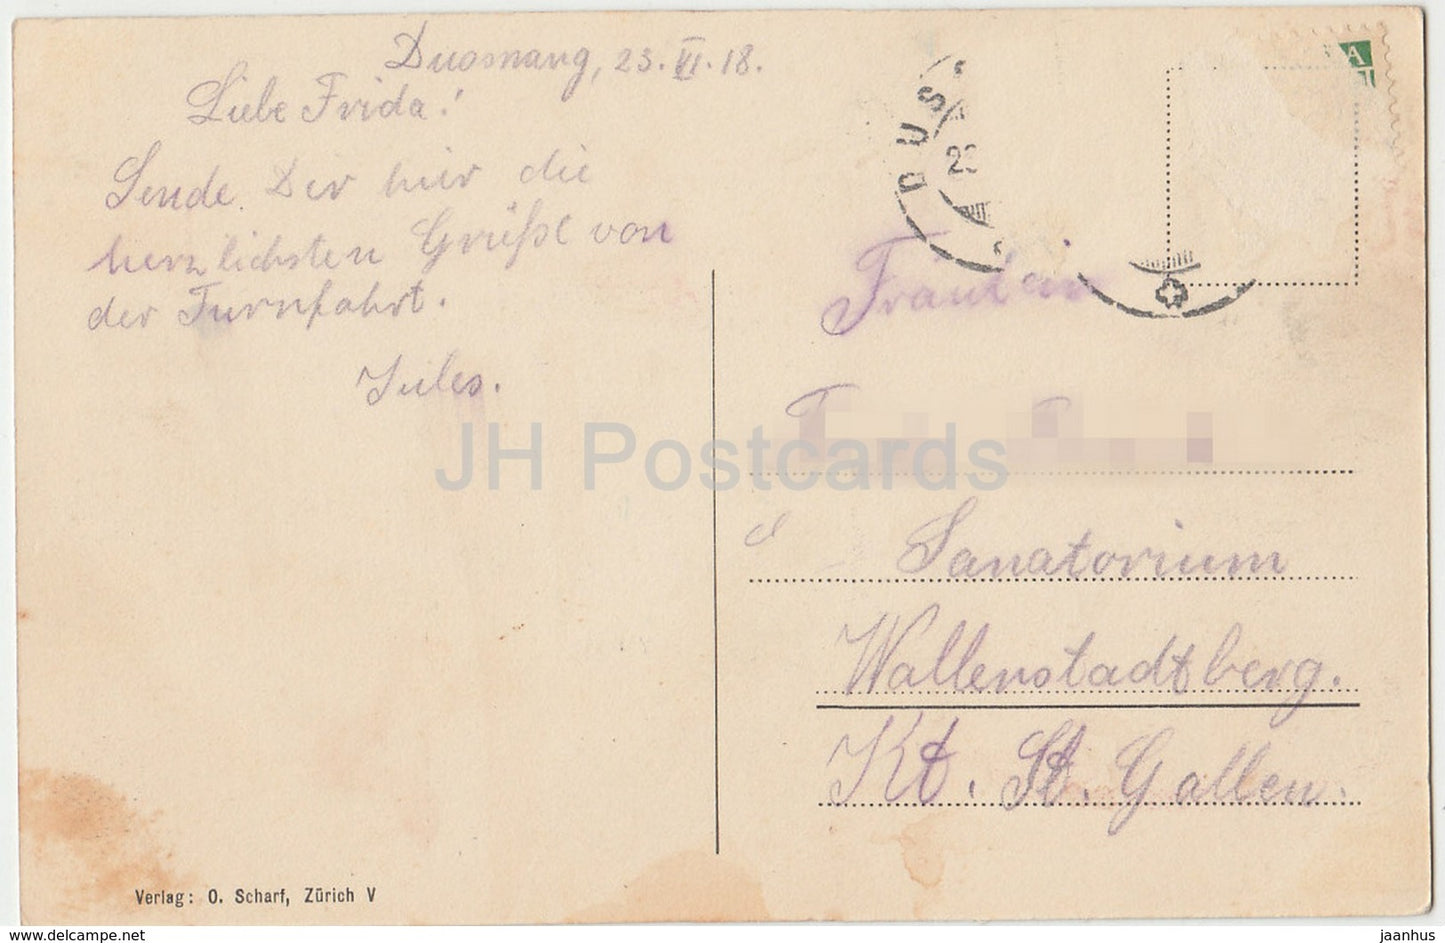 Dussnang, 23. VI. 18.
Liebe Frida!
Sende Dir hier die
herzlichsten Grüße von
der Turnfahrt.
Jules.
DUS
23
A
Fräulein
Sanatorium
Wallenstadtberg.
Kt. St. Gallen.
JH Postcards
Verlag: O. Scharf, Zürich V
www.delcampe.net
jaanhus